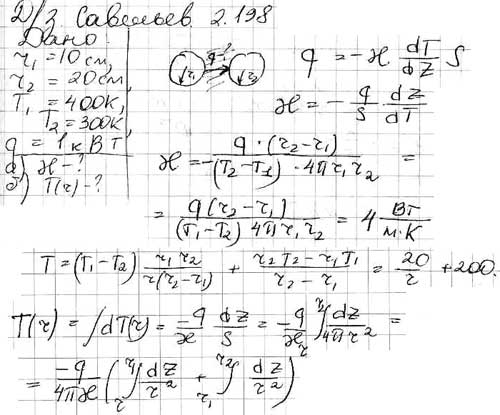 Д/З. Савельев 2.198
Дано:
r₁ = 10 см,
r₂ = 20 см,
T₁ = 400K,
T₂ = 300K,
q = 1 кВт
а) ϰ - ?
б) T(r) - ?
q = -ϰ dT/dz S
ϰ = - q/S dz/dT
ϰ = - q·(r₂-r₁)/((T₂-T₁)·4πr₁r₂) =
= q(r₂-r₁)/((T₁-T₂)4πr₁r₂) = 4 Вт/(м·К)
T = (T₁-T₂) r₁r₂/(r(r₂-r₁)) + (r₂T₂-r₁T₁)/(r₂-r₁) = 20/r + 200.
T(r) = ∫dT(r) = -q/ϰ dz/S = -q/ϰ ∫dz/4πr² =
= -q/4πϰ (∫dz/r² + ∫dz/r²)